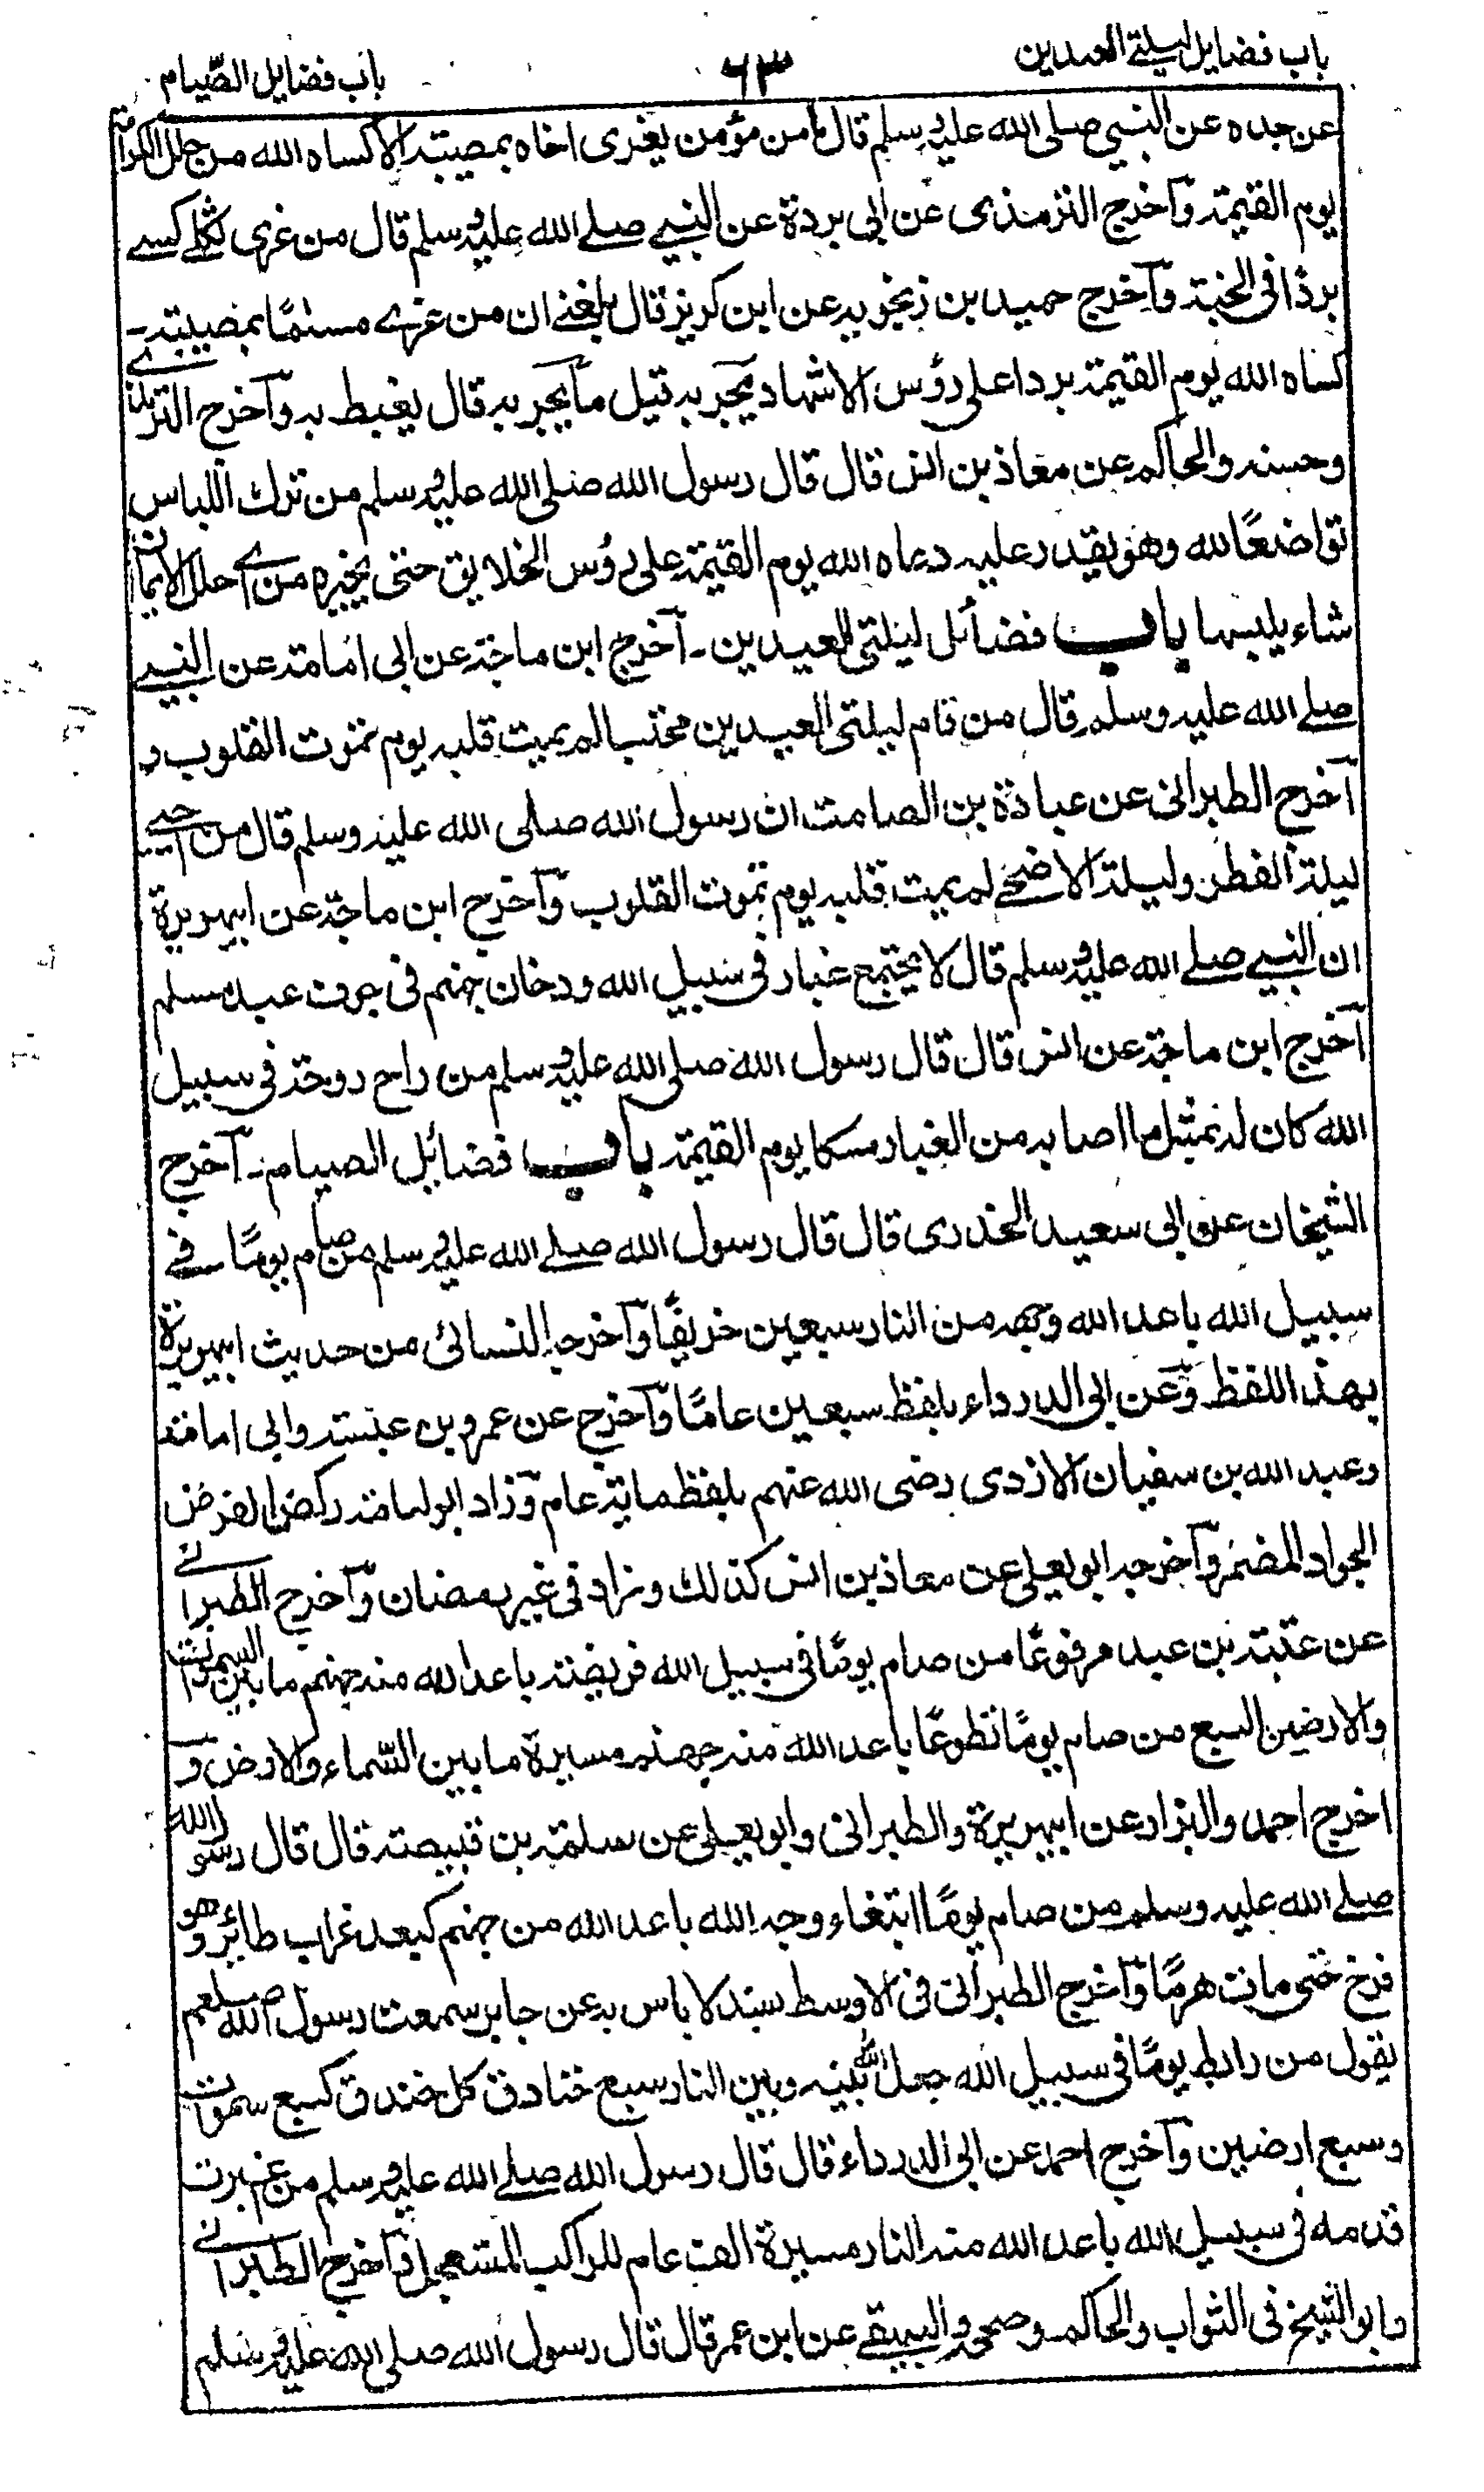 باب فضايل ليلتي العيدين
٦٣
باب فضايل الصّيام
عن جده عن النبي صلى الله عليه وسلم قال ما من مؤمن يعزى اخاه بمصيبته الا كساه الله من حلل الكرامة
يوم القيمة وآخرج الترمذى عن ابى بردة عن النبي صلے الله عليه وسلم قال من عزى ثكلے كسے
بردًا فى الجنة وآخرج حميد بن زنجويه عن ابن كريز قال بلغنے ان من عزے مسلمًا بمصيبته
كساه الله يوم القيمة بردا على رؤس الاشهاد يحبر به قيل ما يحبر به قال يغبط به وآخرج الترمذے
وحسنه والحاكم عن معاذ بن انس قال قال رسول الله صلى الله عليه وسلم من ترك اللباس
تواضعًا لله وهو يقدر عليه دعاه الله يوم القيمة على رؤس الخلايق حتى يخيره من اے حلل الايمان
شاء يلبسها باب فضائل ليلتى العيدين ـ آخرج ابن ماجة عن ابى امامة عن النبے
صلے الله عليه وسلم قال من قام ليلتى العيدين محتسبا لم يميت قلبه يوم تموت القلوب و
آخرج الطبرانى عن عبادة بن الصامت ان رسول الله صلى الله عليه وسلم قال من احيے
ليلة الفطر وليلة الاضحے لم يميت قلبه يوم تموت القلوب وآخرج ابن ماجة عن ابيهريرة
ان النبے صلے الله عليه وسلم قال لا يجتمع غبار فى سبيل الله ودخان جهنم فى جوف عبد مسلم
آخرج ابن ماجة عن انس قال قال رسول الله صلى الله عليه وسلم من راح روحة فى سبيل
الله كان له بمثل ما اصابه من الغبار مسكا يوم القيمة باب فضائل الصيام ـ آخرج
الشيخان عن ابى سعيد الخدرى قال قال رسول الله صلے الله عليه وسلم من صام يومًا فے
سبيل الله باعد الله وجهه من النار سبعين خريفًا وآخرجه النسائى من حديث ابيهريرة
بهذا اللفظ وّعن ابى الدرداء بلفظ سبعين عامًا وآخرج عن عمرو بن عبسة وابى امامة
وعبد الله بن سفيان الازدى رضى الله عنهم بلفظ ماية عام وزاد ابو امامة ركض الفرض
الجواد المضمر وآخرجه ابو يعلى عن معاذ بن انس كذلك وزاد فى غير رمضان وآخرج الطبرانے
عن عتبة بن عبد مرفوعًا من صام يومًا فى سبيل الله فريضة باعد الله منه جهنم ما بين السموات
والارضين السبع من صام يومًا تطوعًا باعد الله منه جهنم مسيرة ما بين السّماء والارض و
اخرج احمد والبزار عن ابيهريرة والطبرانى وابو يعلى عن سلمة بن قبيصة قال قال رسول الله
صلے الله عليه وسلم من صام يومًا ابتغاء وجه الله باعد الله من جهنم كبعد غراب طائر وهو
فرخ حتى مات هرمًا وآخرج الطبرانى فى الاوسط بسند لا باس به عن جابر سمعت رسول الله صلعم
يقول من رابط يومًا فى سبيل الله جعل الله بينه وبين النار سبع خنادق كل خندق كسبع سموات
وسبع ارضين وآخرج احمد عن ابى الدرداء قال قال رسول الله صلے الله عليه وسلم من غبرت
قدمه فى سبيل الله باعد الله منه النار مسيرة الف عام للراكب المستعجل وآخرج الطبرانے
وابو الشيخ فى الثواب والحاكم وصححه والبيهقے عن ابن عمر قال قال رسول الله صلى الله عليه وسلم